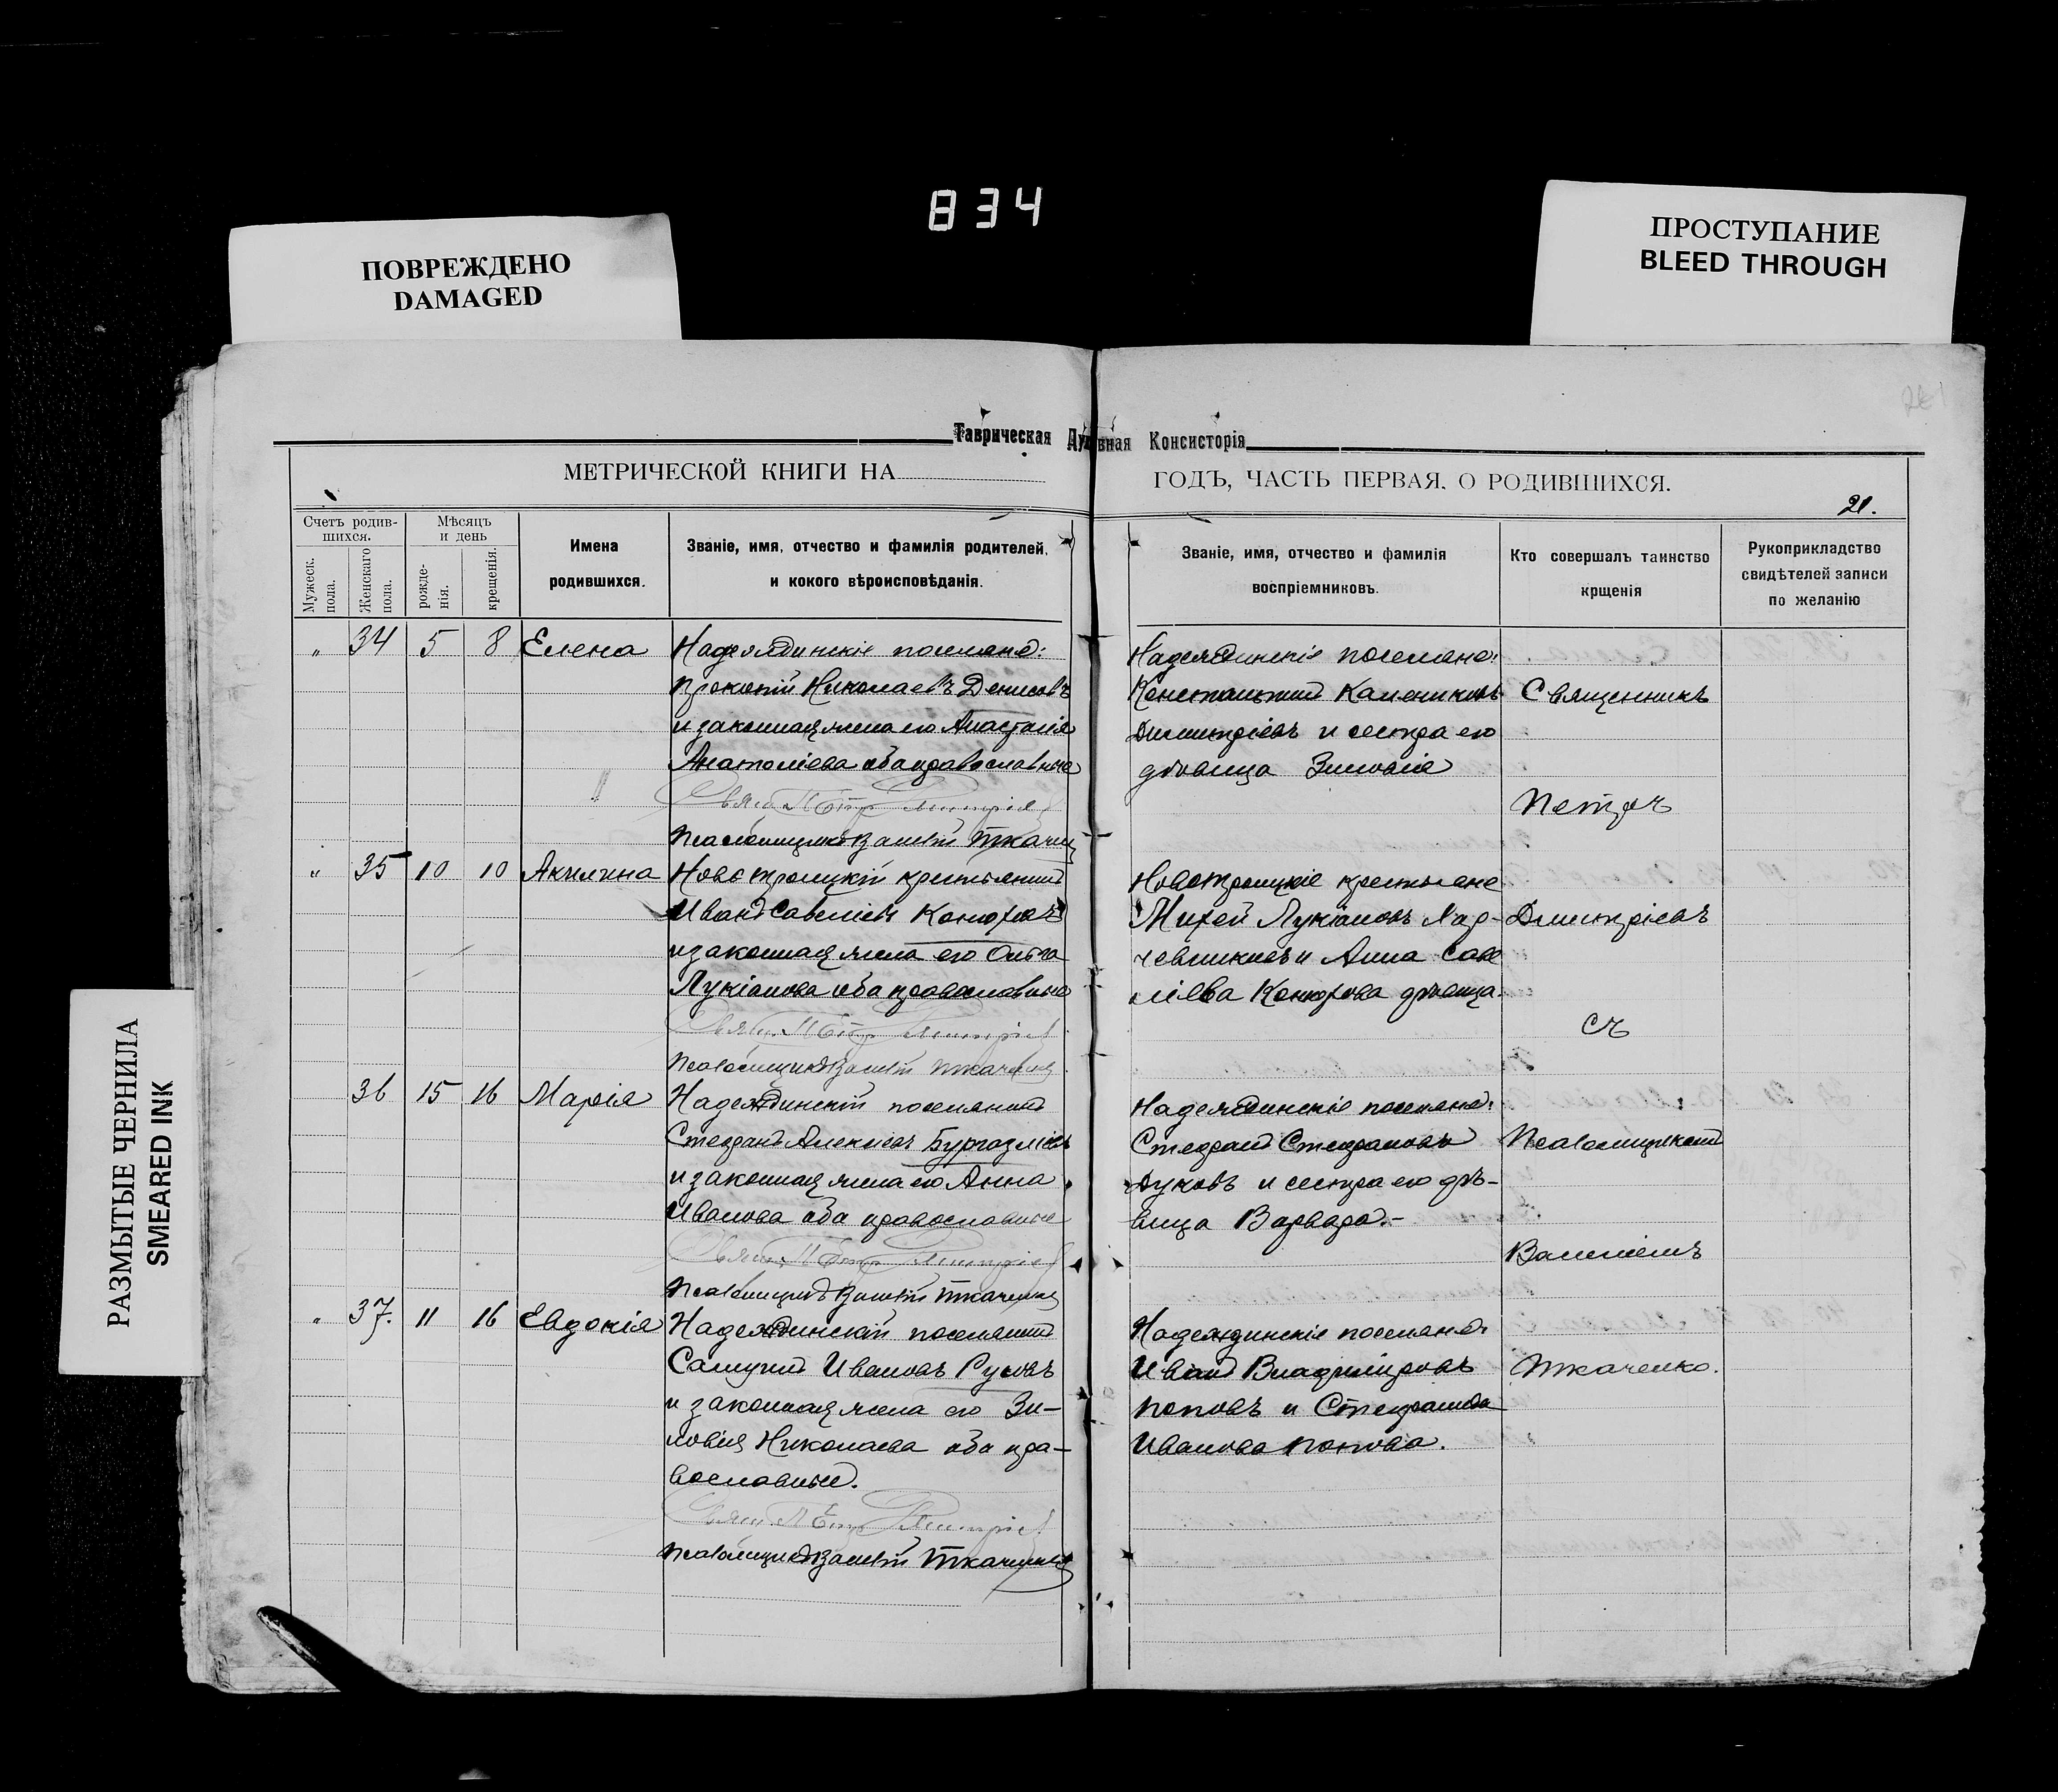 834
ПОВРЕЖДЕНО
DAMAGED
ПРОСТУПАНИЕ
BLEED THROUGH
РАЗМЫТЫЕ ЧЕРНИЛА
SMEARED INK
Таврическая Духовная Консисторія
МЕТРИЧЕСКОЙ КНИГИ НА
ГОДЪ, ЧАСТЬ ПЕРВАЯ, О РОДИВШИХСЯ.
21.
Счетъ родив-
шихся.
Мужеск.
пола.
Женскаго
пола.
Мѣсяцъ
и день
рожде-
нія.
крещенія.
Имена
родившихся.
Званіе, имя, отчество и фамилія родителей,
и кокого вѣроисповѣданія.
Званіе, имя, отчество и фамилія
воспріемниковъ.
Кто совершалъ таинство
крщенія
Рукоприкладство
свидѣтелей записи
по желанію
„ 34 5 8 Елена
Надеждинскіе поселяне:
Прокопій Николаевъ Денисовъ
и законная жена его Анастасія
Анатоліева оба православные
Свящ. Петр Димитріев
Псаломщикъ Василій Ткаченко
Надеждинскіе поселяне:
Константинъ
Димитріевъ и сестра его
дѣвица Зиновія
Священникъ
Петръ
„ 35 10 10 Акилина
Новотроицкій крестьянинъ
Иванъ Савеліевъ Конюховъ
и законная жена его Ольга
Лукіанова оба православные
Свящ. Петр Димитріев
Псаломщикъ Василій Ткаченко
Новотроицкіе крестьяне
Михей Лукіановъ
и Анна Саве
ліева Конюхова дѣвица.
Димитріевъ
съ
36 15 16 Марія
Надеждинскій поселянинъ
Стефанъ Алексѣевъ
и законная жена его Анна
Иванова оба православные
Свящ. Петр Димитріев
Псаломщикъ Василій Ткаченко
Надеждинскіе поселяне:
Стефанъ Стефановъ
Дуковъ и сестра его дѣ-
вица Варвара.-
Псаломщикомъ
Василіемъ
„ 37. 11 16 Евдокія
Надеждинскій поселянинъ
Самуилъ Ивановъ Русовъ
и законная жена его Зи-
новія Николаева оба пра-
вославные.
Свящ. Петр Димитріев
Псаломщикъ Василій Ткаченко
Надеждинскіе поселяне
Иванъ Владиміровъ
Поповъ и Стефанида
Иванова Попова.
Ткаченко.